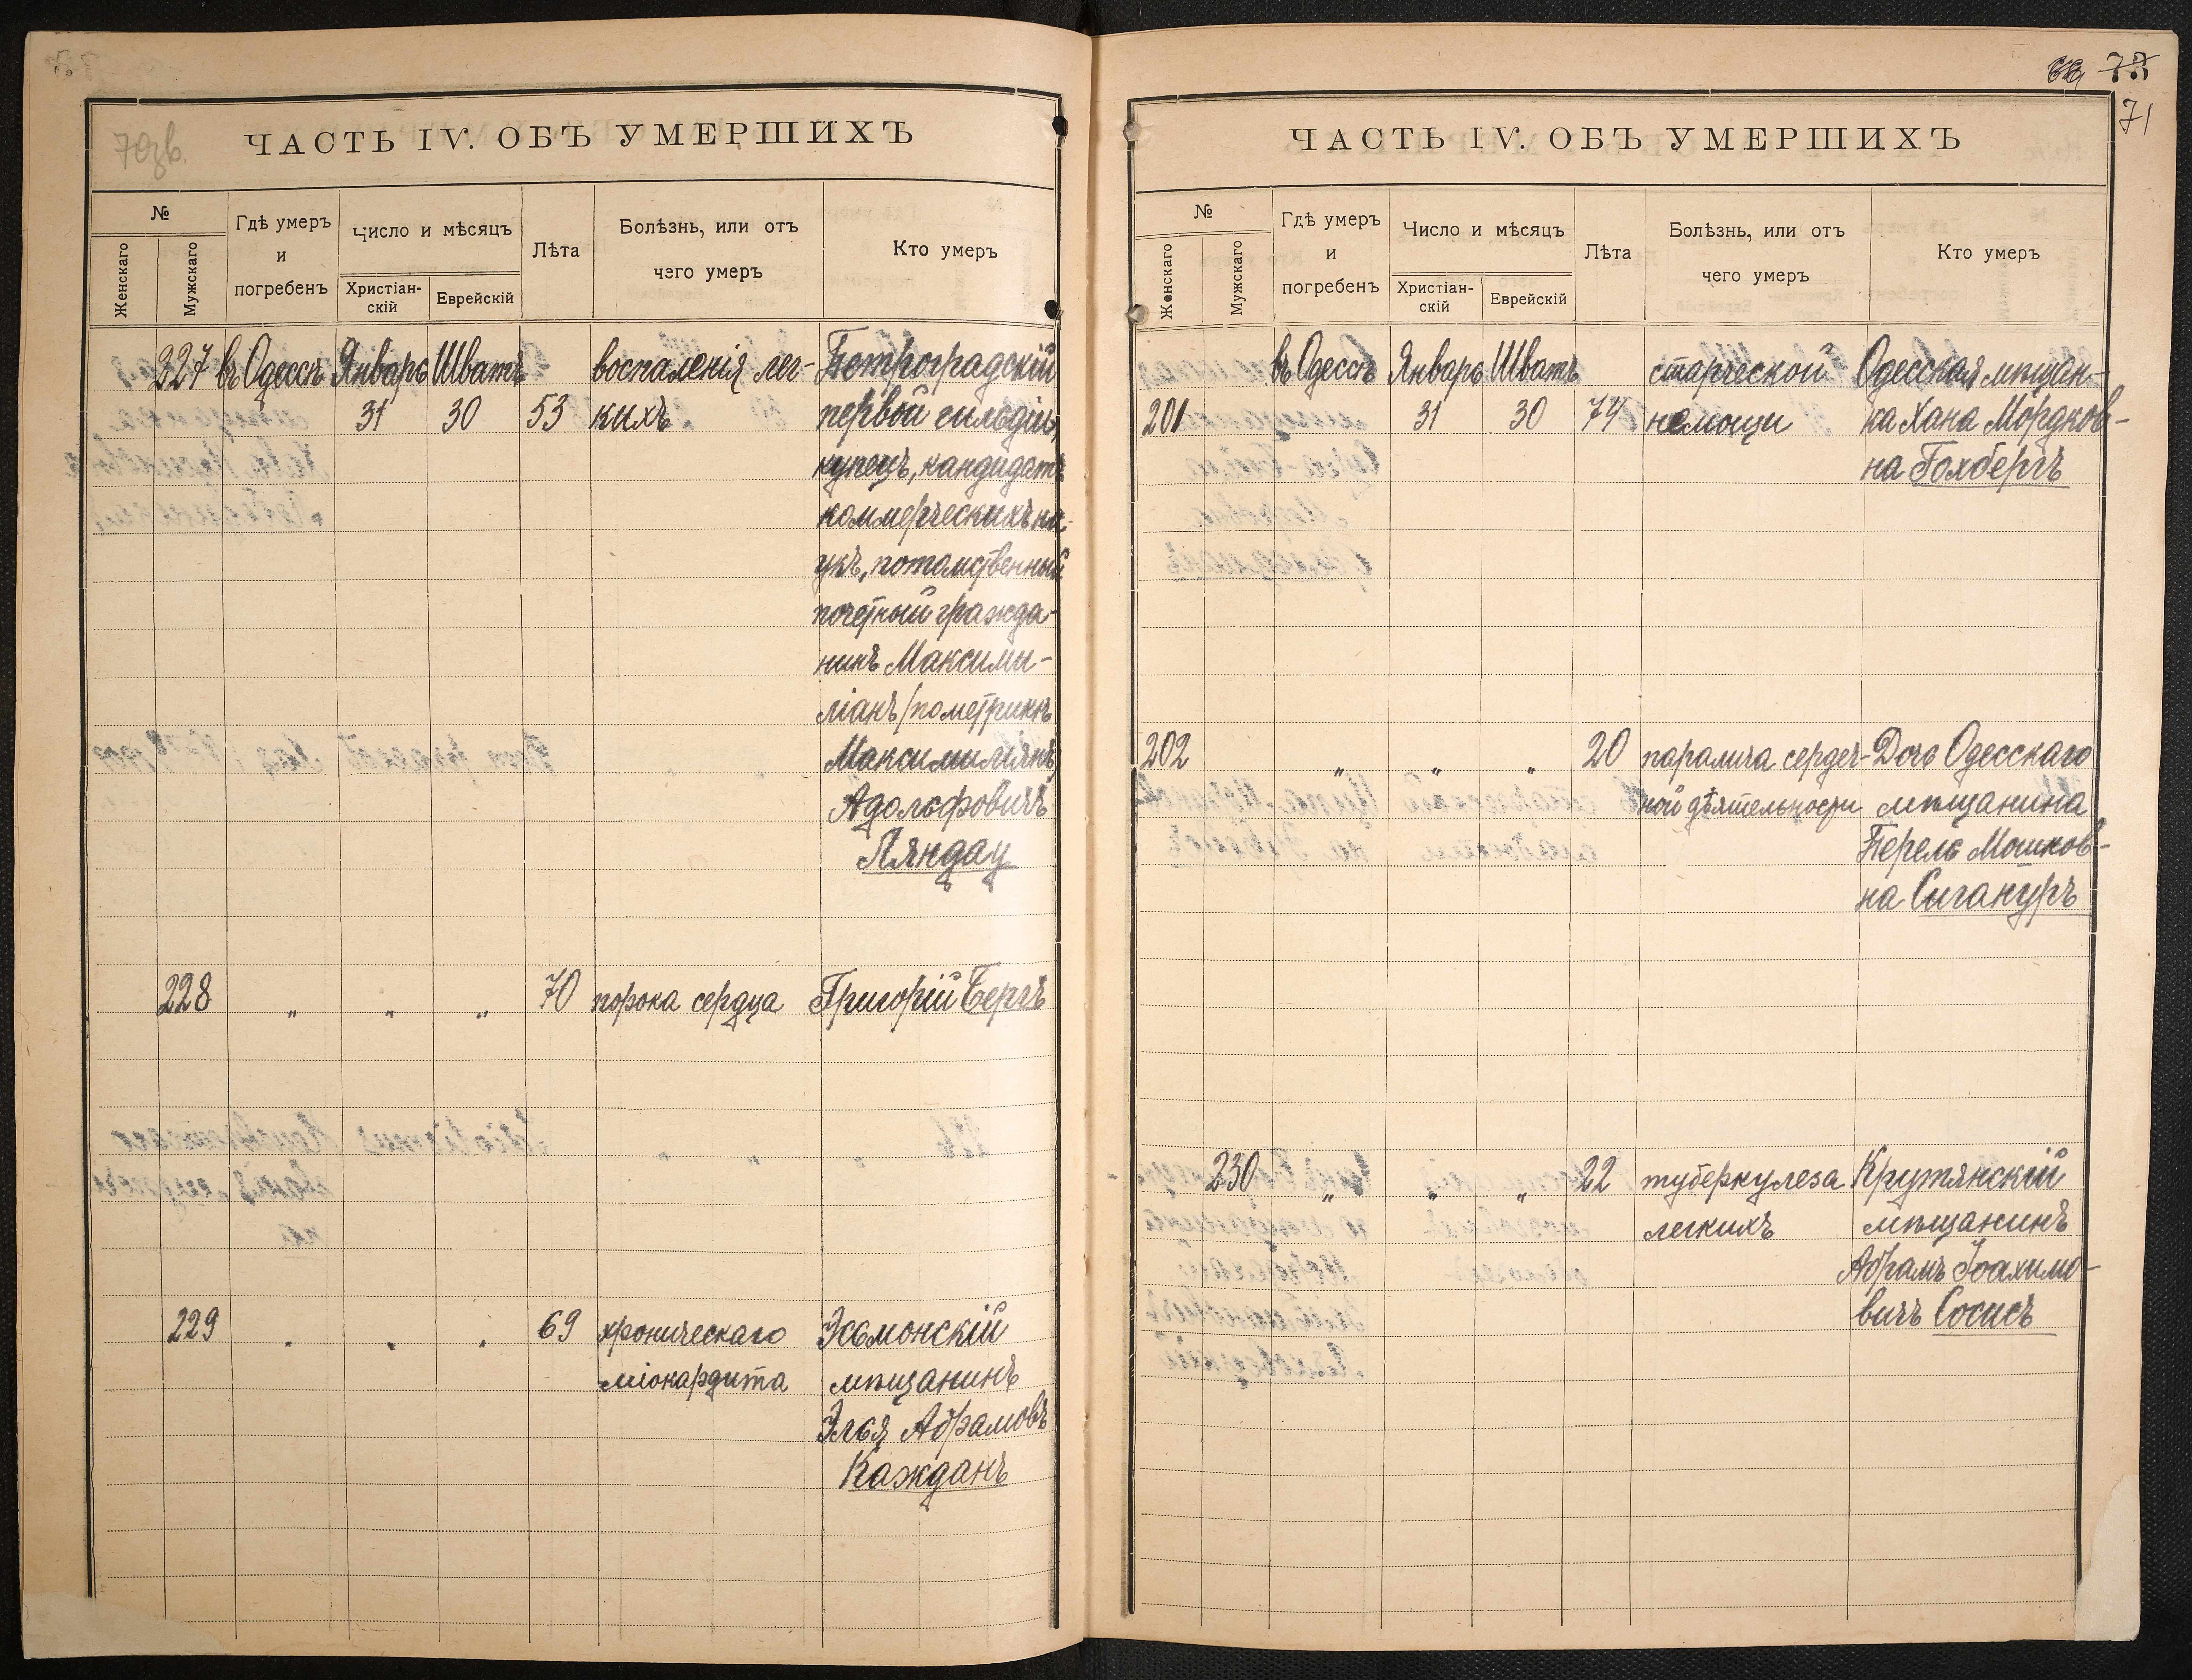 70 зв.
ЧАСТЬ IV. ОБЪ УМЕРШИХЪ
№
Женскаго
Мужскаго
Гдѣ умеръ
и
погребенъ
Число и мѣсяцъ
Христіан-
скій
Еврейскій
Лѣта
Болѣзнь, или отъ
чего умеръ
Кто умеръ
227 въ Одессѣ Январь Шватъ воспаленія лег- Петроградскій
31 30 53 кихъ первой гильдіи,
купецъ, кандидатъ
коммерческихъ на-
укъ, потомственный
почетный гражда-
нинъ Максими-
ліанъ/по метрикѣ
Максимильянъ/
Адольфовичъ
Ляндау
228 " " " 70 порока сердца Григорій Бергъ
229 " " " 69 хроническаго Эсьмонскій
міокардита мѣщанинъ
Элья Абрамовъ
Кажданъ
73
71
ЧАСТЬ IV. ОБЪ УМЕРШИХЪ
№
Женскаго
Мужскаго
Гдѣ умеръ
и
погребенъ
Число и мѣсяцъ
Христіан-
скій
Еврейскій
Лѣта
Болѣзнь, или отъ
чего умеръ
Кто умеръ
въ Одессѣ Январь Шватъ старческой Одесская мѣщан-
201 31 30 74 немощи ка Хана Мордков-
на Гохбергъ
202 " " " 20 паралича сердеч- Дочь Одесскаго
ной дѣятельности мѣщанина
Перель Мошков-
на Сигануръ
230 " " " 22 туберкулеза Крутянскій
легкихъ мѣщанинъ
Абрамъ Іоахимо-
вичъ Сосисъ